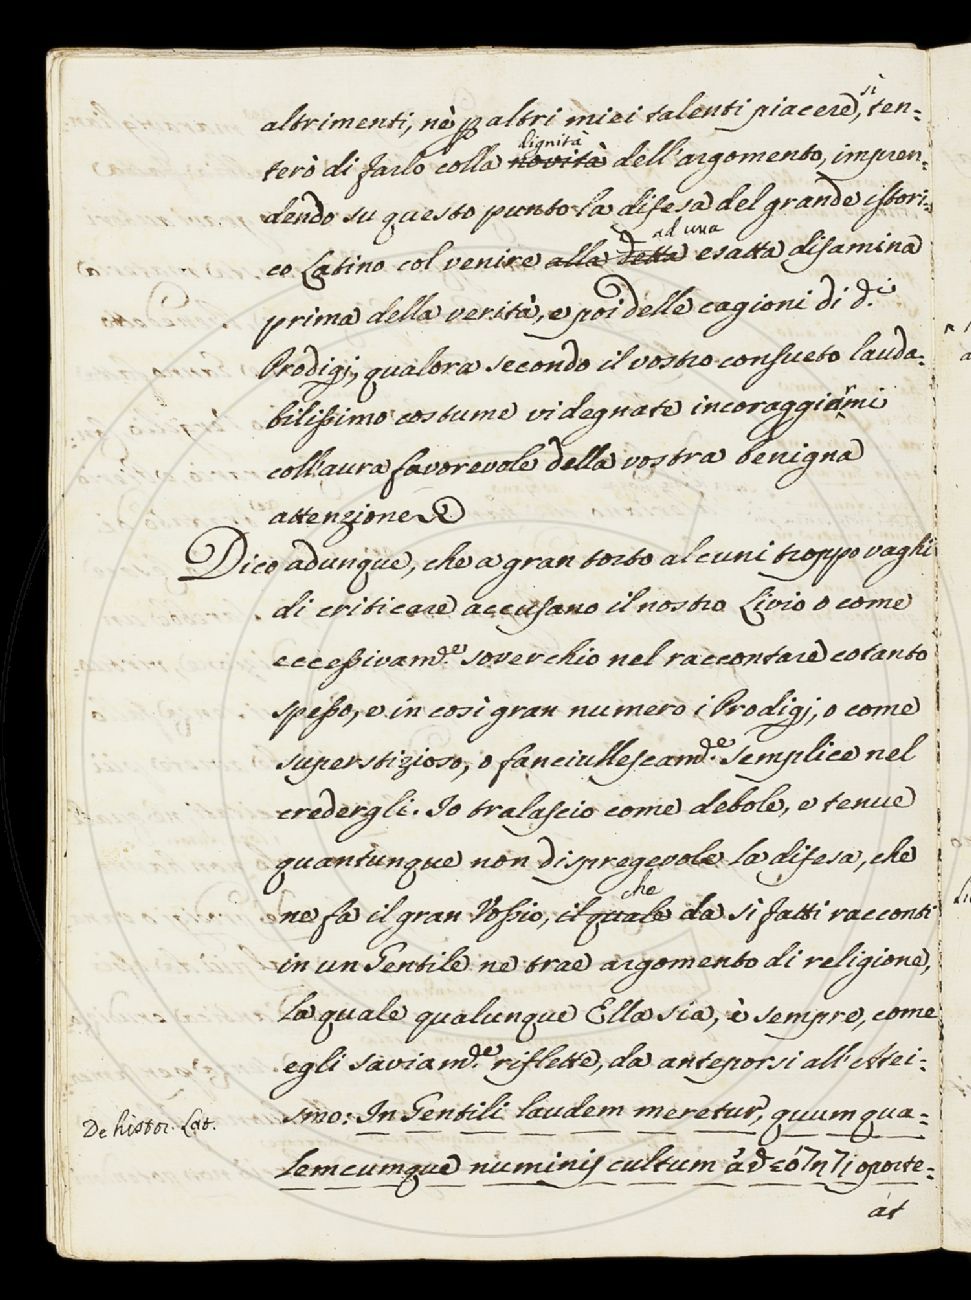 altrimenti, nè p altri miei talenti piacere, sì ten-
terò di farlo colla novità dignità dell'argomento, impren-
dendo su questo punto la difesa del grande istori-
co Latino col venire alla detta ad una esatta disamina
prima della verità, e poi delle cagioni di d.i
Prodigj, qualora secondo il vostro consueto lauda-
bilissimo costume vi degnate incoraggiarmi
coll'aura favorevole della vostra benigna
attenzione
Dico adunque, che a gran torto alcuni troppo vaghi
di criticare accusano il nostro Livio o come
eccessivam.de soverchio nel raccontare cotanto
spesso, e in così gran numero i Prodigj, o come
superstizioso, o fanciullescam.de semplice nel
credergli. Io tralascio come debole, e tenue
quantunque non dispregevole la difesa, che
ne fa il gran Vossio, il quale che da sì fatti racconti
in un Gentile ne trae argomento di religione,
la quale qualunque Ella sia, è sempre, come
egli saviam.de riflette, da anteporsi all'Atei-
smo: In Gentili laudem meretur, quum qua-
De histor. Lat.
lemcumque numinis cultum ἀθεότητι oporte-
at